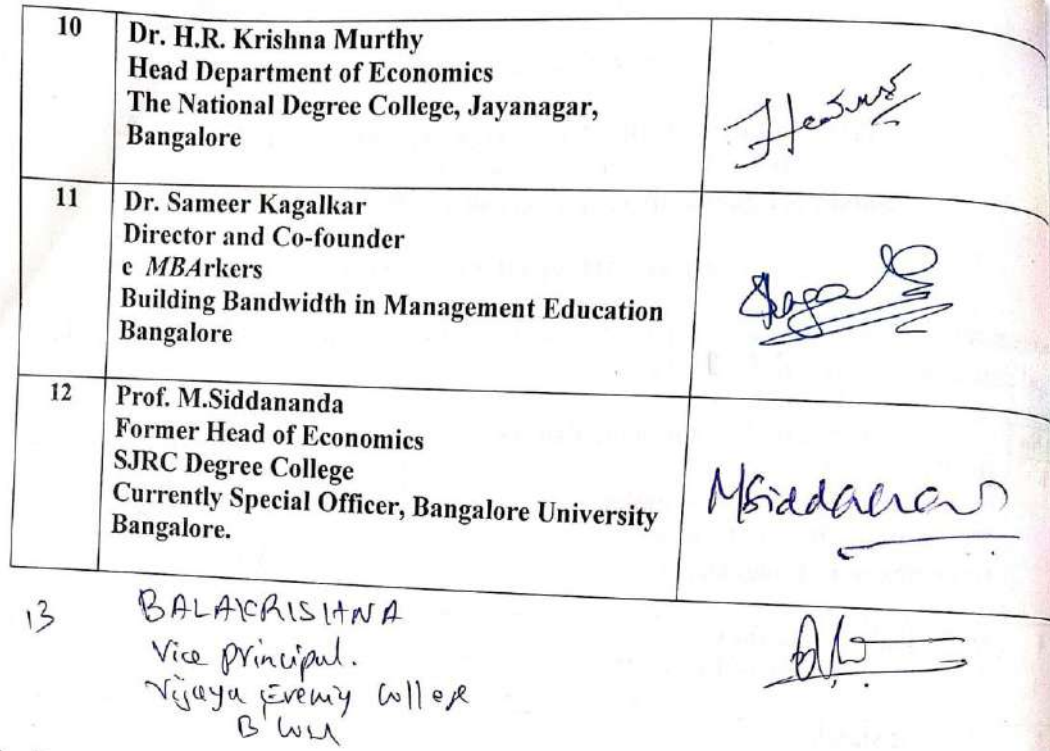 10
Dr. H.R. Krishna Murthy
Head Department of Economics
The National Degree College, Jayanagar,
Bangalore
11
Dr. Sameer Kagalkar
Director and Co-founder
e MBArkers
Building Bandwidth in Management Education
Bangalore
12
Prof. M.Siddananda
Former Head of Economics
SJRC Degree College
Currently Special Officer, Bangalore University
Bangalore.
13
BALAKRISHNA
Vice principal.
Vijaya Evening College